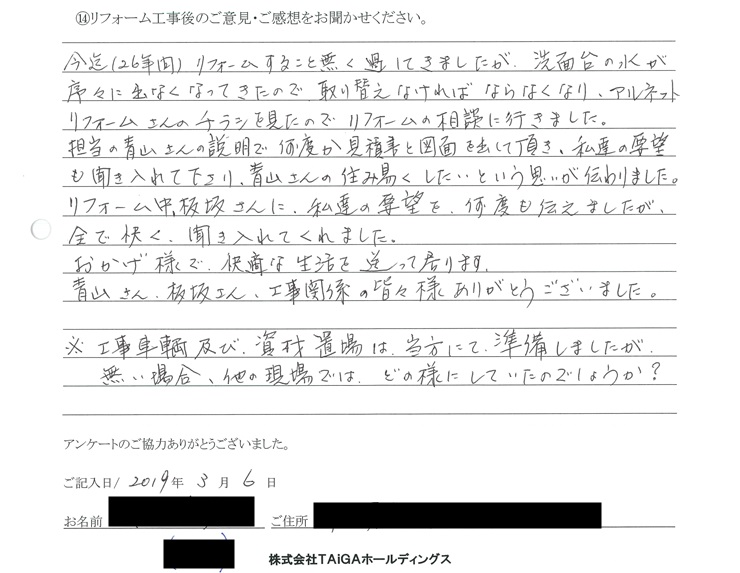 ⑭リフォーム工事後のご意見・ご感想をお聞かせください。
今迄(26年間)リフォームすること無く過してきましたが、洗面台の水が
序々に出なくなってきたので、取り替えなければならなくなり、アルネット
リフォームさんのチラシを見たのでリフォームの相談に行きました。
担当の青山さんの説明で何度か見積書と図面を出して頂き、私達の要望
も聞き入れて下さり、青山さんの住み易くしたいという思いが伝わりました。
リフォーム中、板坂さんに、私達の要望を、何度も伝えましたが、
全て快く、聞き入れてくれました。
おかげ様で、快適な生活を送って居ります。
青山さん、板坂さん、工事関係の皆々様ありがとうございました。
※ 工事車輌及び、資材置場は、当方にて、準備しましたが、
無い場合、他の現場では、どの様にしていたのでしょうか?
アンケートのご協力ありがとうございました。
ご記入日/ 2019年 3月 6日
お名前 ご住所
株式会社TAiGAホールディングス